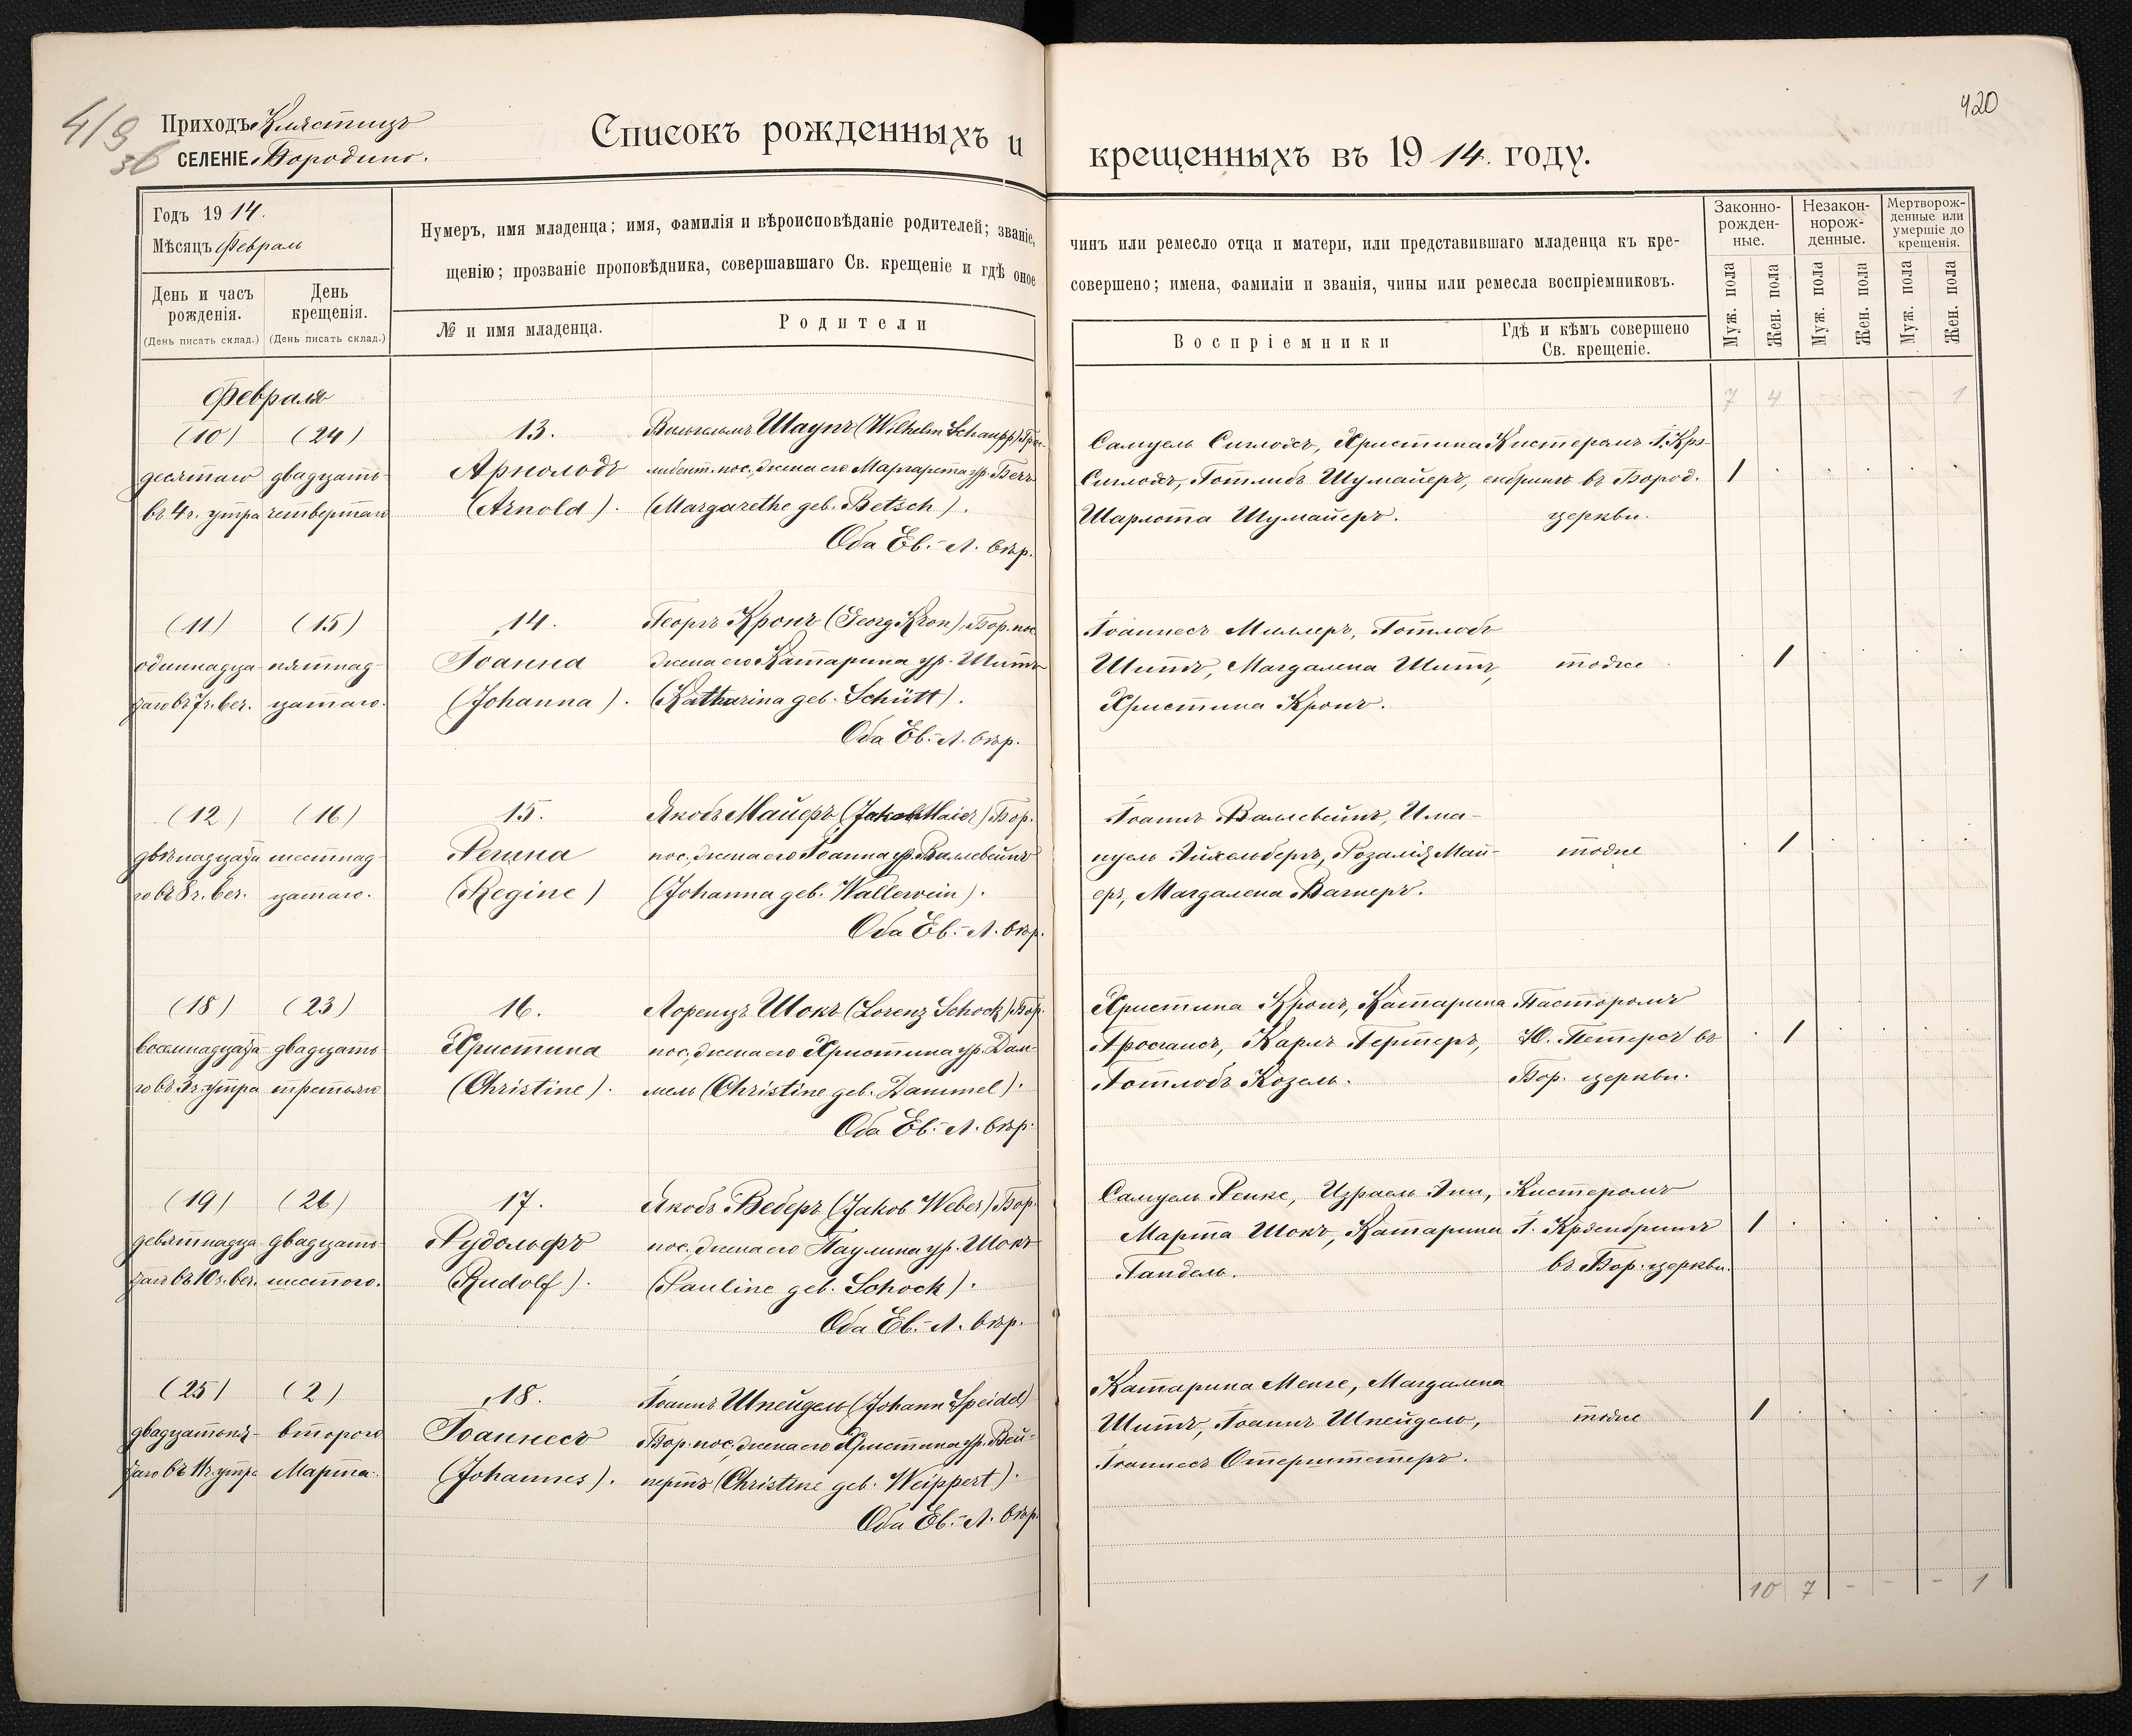 4/9
36
420
Приходъ Клястицъ
СЕЛЕНІЕ Бородино.
Списокъ рожденныхъ и крещенныхъ въ 1914. году.
Годъ 1914.
Мѣсяцъ Февраль
День и часъ рожденія.
(День писать склад.)
День крещенія.
(День писать склад.)
Нумеръ, имя младенца; имя, фамилія и вѣроисповѣданіе родителей; званіе,
щенію; прозваніе проповѣдника, совершавшаго Св. крещеніе и гдѣ оное
№ и имя младенца.
Родители
чинъ или ремесло отца и матери, или представившаго младенца къ кре-
совершено; имена, фамиліи и званія, чины или ремесла воспріемниковъ.
Воспріемники
Гдѣ и кѣмъ совершено
Св. крещеніе.
Законно-
рожден-
ные.
Незакон-
норож-
денные.
Мертворож-
денные или
умершіе до
крещенія.
Муж. пола
Жен. пола
Муж. пола
Жен. пола
Муж. пола
Жен. пола
Февраля
7 4 1
(10) (24) 13. Вильгельмъ Шаупъ (Wilhelm Schaupp)
десятаго двадцать- Арнольдъ пос., жена его Маргарета ур. Бечъ
въ 4 ч. утра четвертаго (Arnold). (Margarethe geb. Betsch).
Оба Ев.-Л. вѣр.
Самуель Сиглохъ, Христина Кистеромъ Г. Крэ-
Сиглохъ, Готлибъ Шумайеръ, енбринкъ въ Бород. 1
Шарлота Шумайеръ. церкви.
(11) (15) 14. Георгъ Кронъ (Georg Kron), Бор. пос.
одиннадца- пятнад- Іоанна жена его Катарина ур. Шитъ
таго въ 7 ч. веч. цатаго. (Johanna). (Katharina geb. Schütt).
Оба Ев.-Л. вѣр.
Іоаннесъ Миллеръ, Готлобъ
Шитъ, Магдалена Шитъ, тоже 1
Христина Кронъ.
(12) (16) 15. Якобъ Майеръ (Jakob Maier) Бор.
двѣнадцата- шестнад- Регина пос., жена его Іоанна ур. Валлевейнъ
го въ 8 ч. веч. цатаго. (Regine) (Johanna geb. Wallewein).
Оба Ев.-Л. вѣр.
Іоаннъ Валлевейнъ, Има-
нуель Айхельбергъ, Розалія Май- тоже 1
еръ, Магдалена Вагнеръ.
(18) (23) 16. Лоренцъ Шокъ (Lorenz Schock) Бор.
восемнадцата- двадцать- Христина пос., жена его Христина ур. Дам-
го въ 3 ч. утра третьяго (Christine). мель (Christine geb. Dammel).
Оба Ев.-Л. вѣр.
Христина Кронъ, Катарина Пасторомъ
Карлъ Гертеръ, Ю. Петерсъ въ 1
Готлобъ Козель. Бор. церкви.
(19) (26) 17. Якобъ Веберъ (Jakob Weber) Бор.
девятнадца- двадцать- Рудольфъ пос., жена его Паулина ур. Шокъ
таго въ 10 ч. веч. шестого. (Rudolf). (Pauline geb. Schock).
Оба Ев.-Л. вѣр.
Самуель Ренке, Израель Кистеромъ
Марта Шокъ, Катарина Г. Крэенбринкъ 1
Гандель. въ Бор. церкви.
(25) (2) 18. Іоаннъ Шпейдель (Johann Speidel)
двадцатопя- второго Іоаннесъ Бор. пос., жена его Христина ур. Вей-
таго въ 11 ч. утра Марта. (Johannes). пертъ (Christine geb. Weippert).
Оба Ев.-Л. вѣр.
Катарина Менге, Магдалена
Шитъ, Іоаннъ Шпейдель, тоже 1
Іоаннесъ Отерштетеръ.
10 7 - - - 1